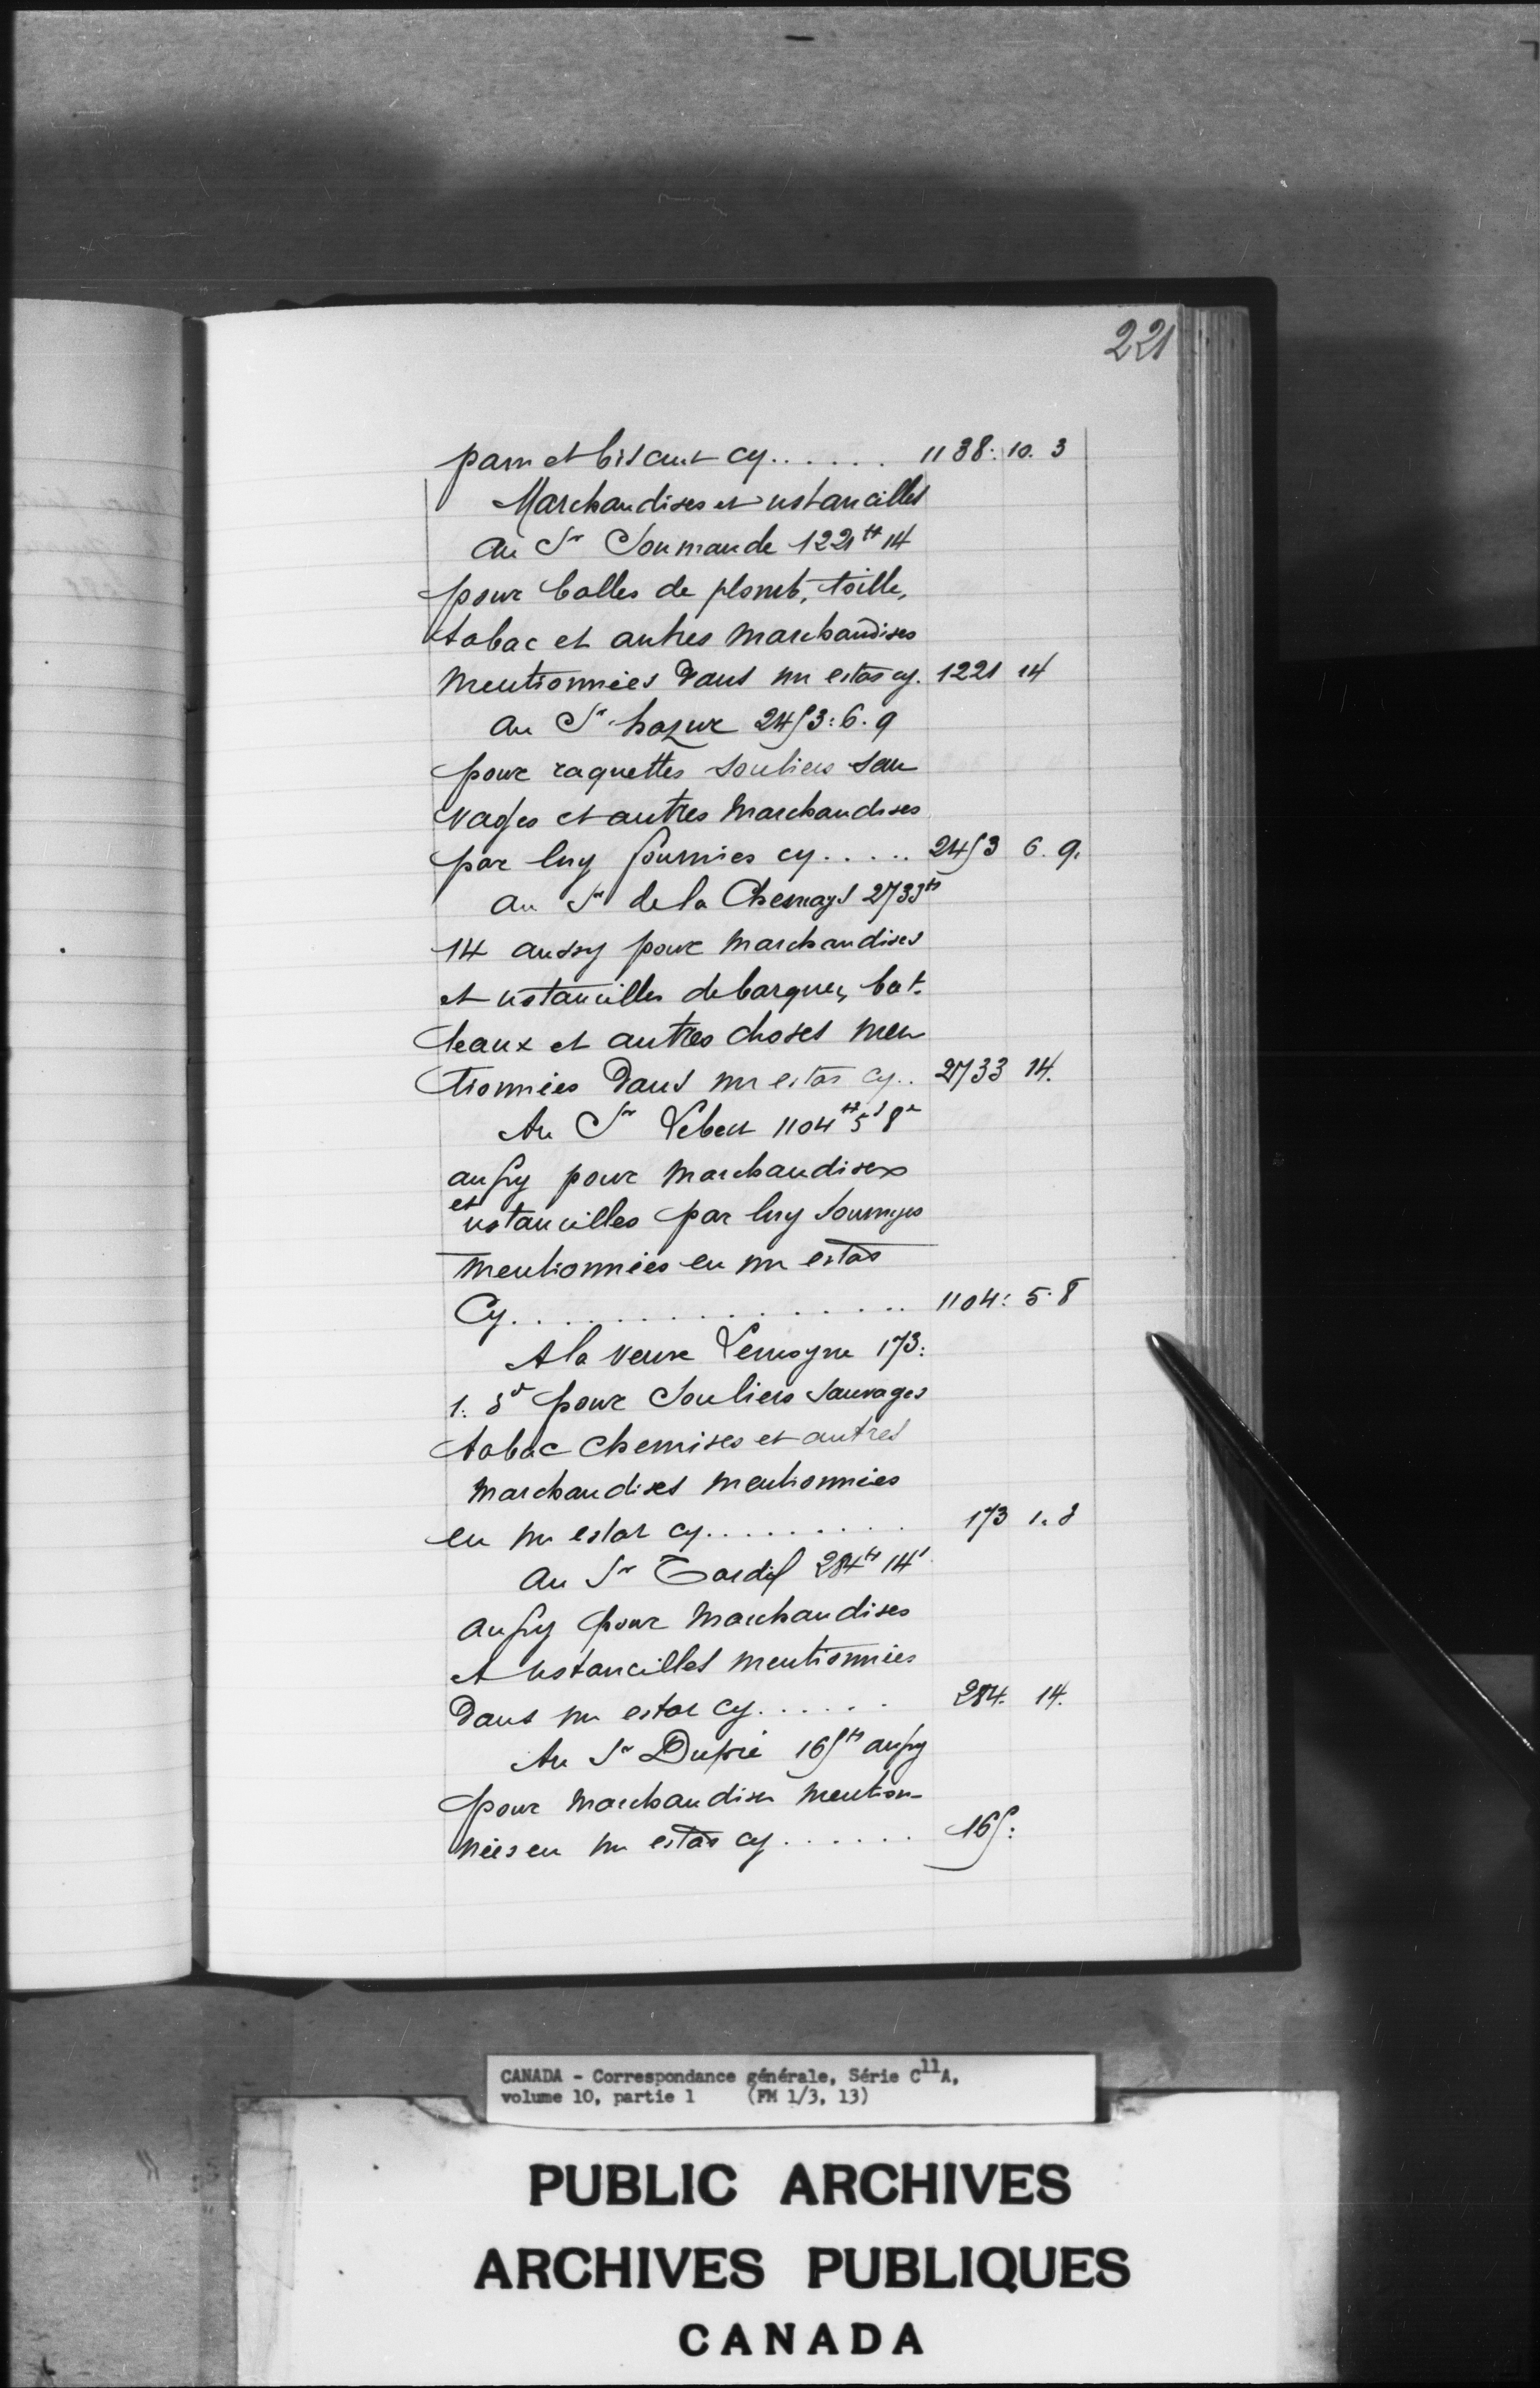 221
pain et biscuit cy...... 1138: 10. 3
Marchandises et ustancilles
au Sr Soumande 1221tt 14
pour balles de plomb, toille,
tabac et autres marchandises
mentionnées dans un estat cy. 1221 14
au Sr hazur 2453: 6. 9
pour raquettes souliers sau
vages et autres marchandises
par luy fournies cy..... 2453 6. 9.
au Sr de la Chesnays 2733tt
14 aussy pour marchandises
et ustancilles de barques, bat-
teaux et autres choses men
tionnées dans un estat cy.. 2733 14.
Au Sr Lebert 1104tt 5s 8d
aussy pour marchandises
et ustancilles par luy fournyes
mentionnées en un estat
Cy.................. 1104: 5. 8
A la veuve Lemoyne 173:
1: 8d pour souliers sauvages
tabac chemises et autres
marchandises mentionnées
en un estat cy......... 173 1. 8
au Sr Tardif 284tt 14s
aussy pour marchandises
et ustancilles mentionnées
dans un estat cy...... 284. 14.
Au Sr Dupré 165tt aussy
pour marchandises mention-
nées en un estat cy....... 165:
CANADA - Correspondance générale, Série C11A,
volume 10, partie 1 (FM 1/3, 13)
PUBLIC ARCHIVES
ARCHIVES PUBLIQUES
CANADA